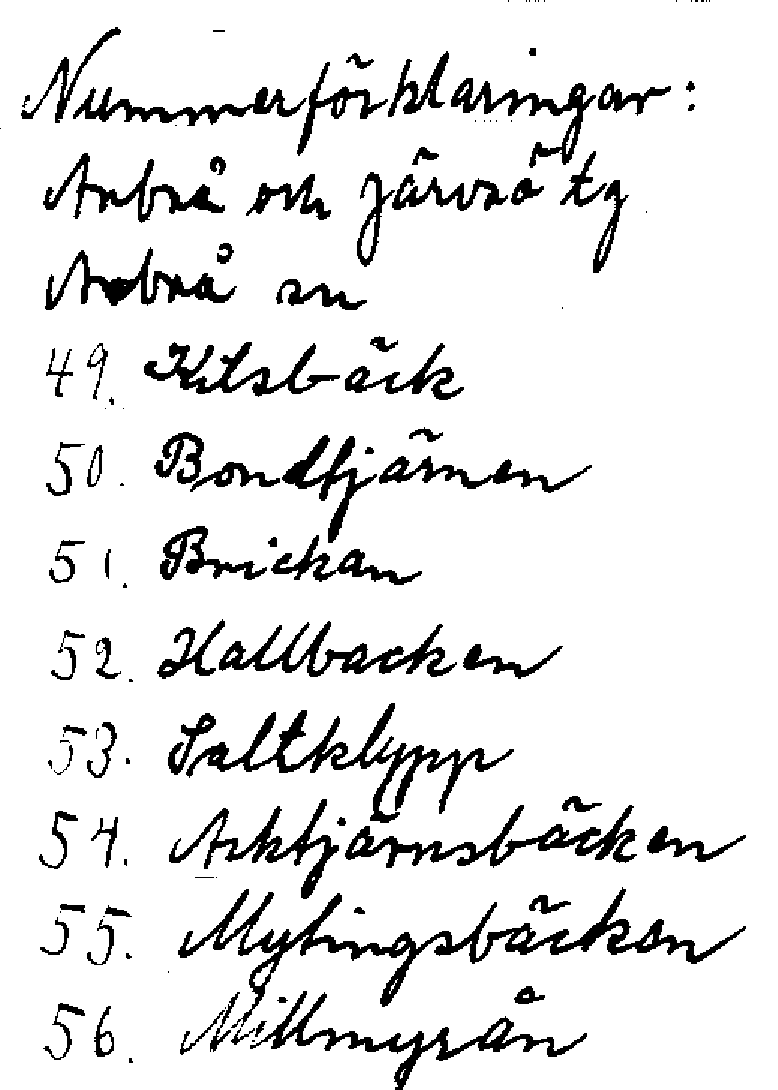 Nummerförklaringar:
Arbrå och Järvsö tg
Arbrå sn
49. Kilsbäck
50. Bondtjärnen
51. Brickan
52. Hallbacken
53. Saltklypp
54. Acktjärnsbäcken
55. Mytingsbäcken
56. Millmyrån